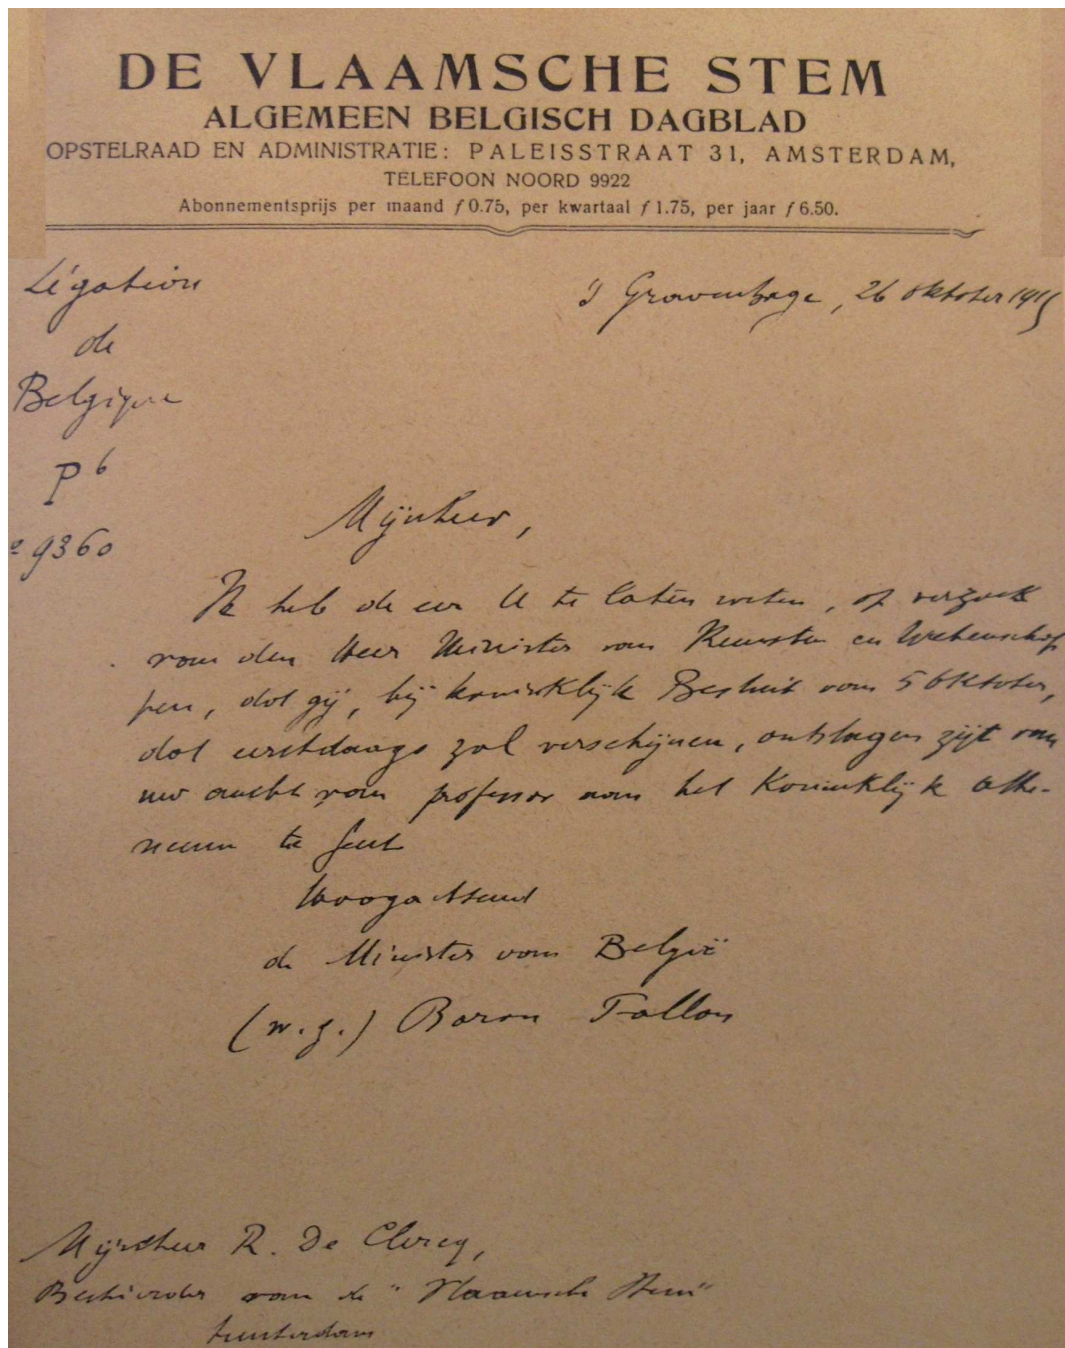 DE VLAAMSCHE STEM
ALGEMEEN BELGISCH DAGBLAD
OPSTELRAAD EN ADMINISTRATIE: PALEISSTRAAT 31, AMSTERDAM,
TELEFOON NOORD 9922
Abonnementsprijs per maand f 0.75, per kwartaal f 1.75, per jaar f 6.50.
Légation
de
Belgique
P 6
9360
's Gravenhage, 26 Oktober 1915
Mijnheer,
Ik heb de eer U te laten weten, op verzoek
van den Heer Minister van Kunsten en Wetenschap
pen, dat gij, bij koninklijk Besluit van 5 Oktober,
dat eerstdaags zal verschijnen, ontslagen zijt van
uw ambt van professor aan het Koninklijk Athe-
neum te Gent
Hoogachtend
de Minister van België
(w.g.) Baron Fallon
Mijnheer R. De Clercq,
Bestierder van de "Vlaamsche Stem"
Amsterdam